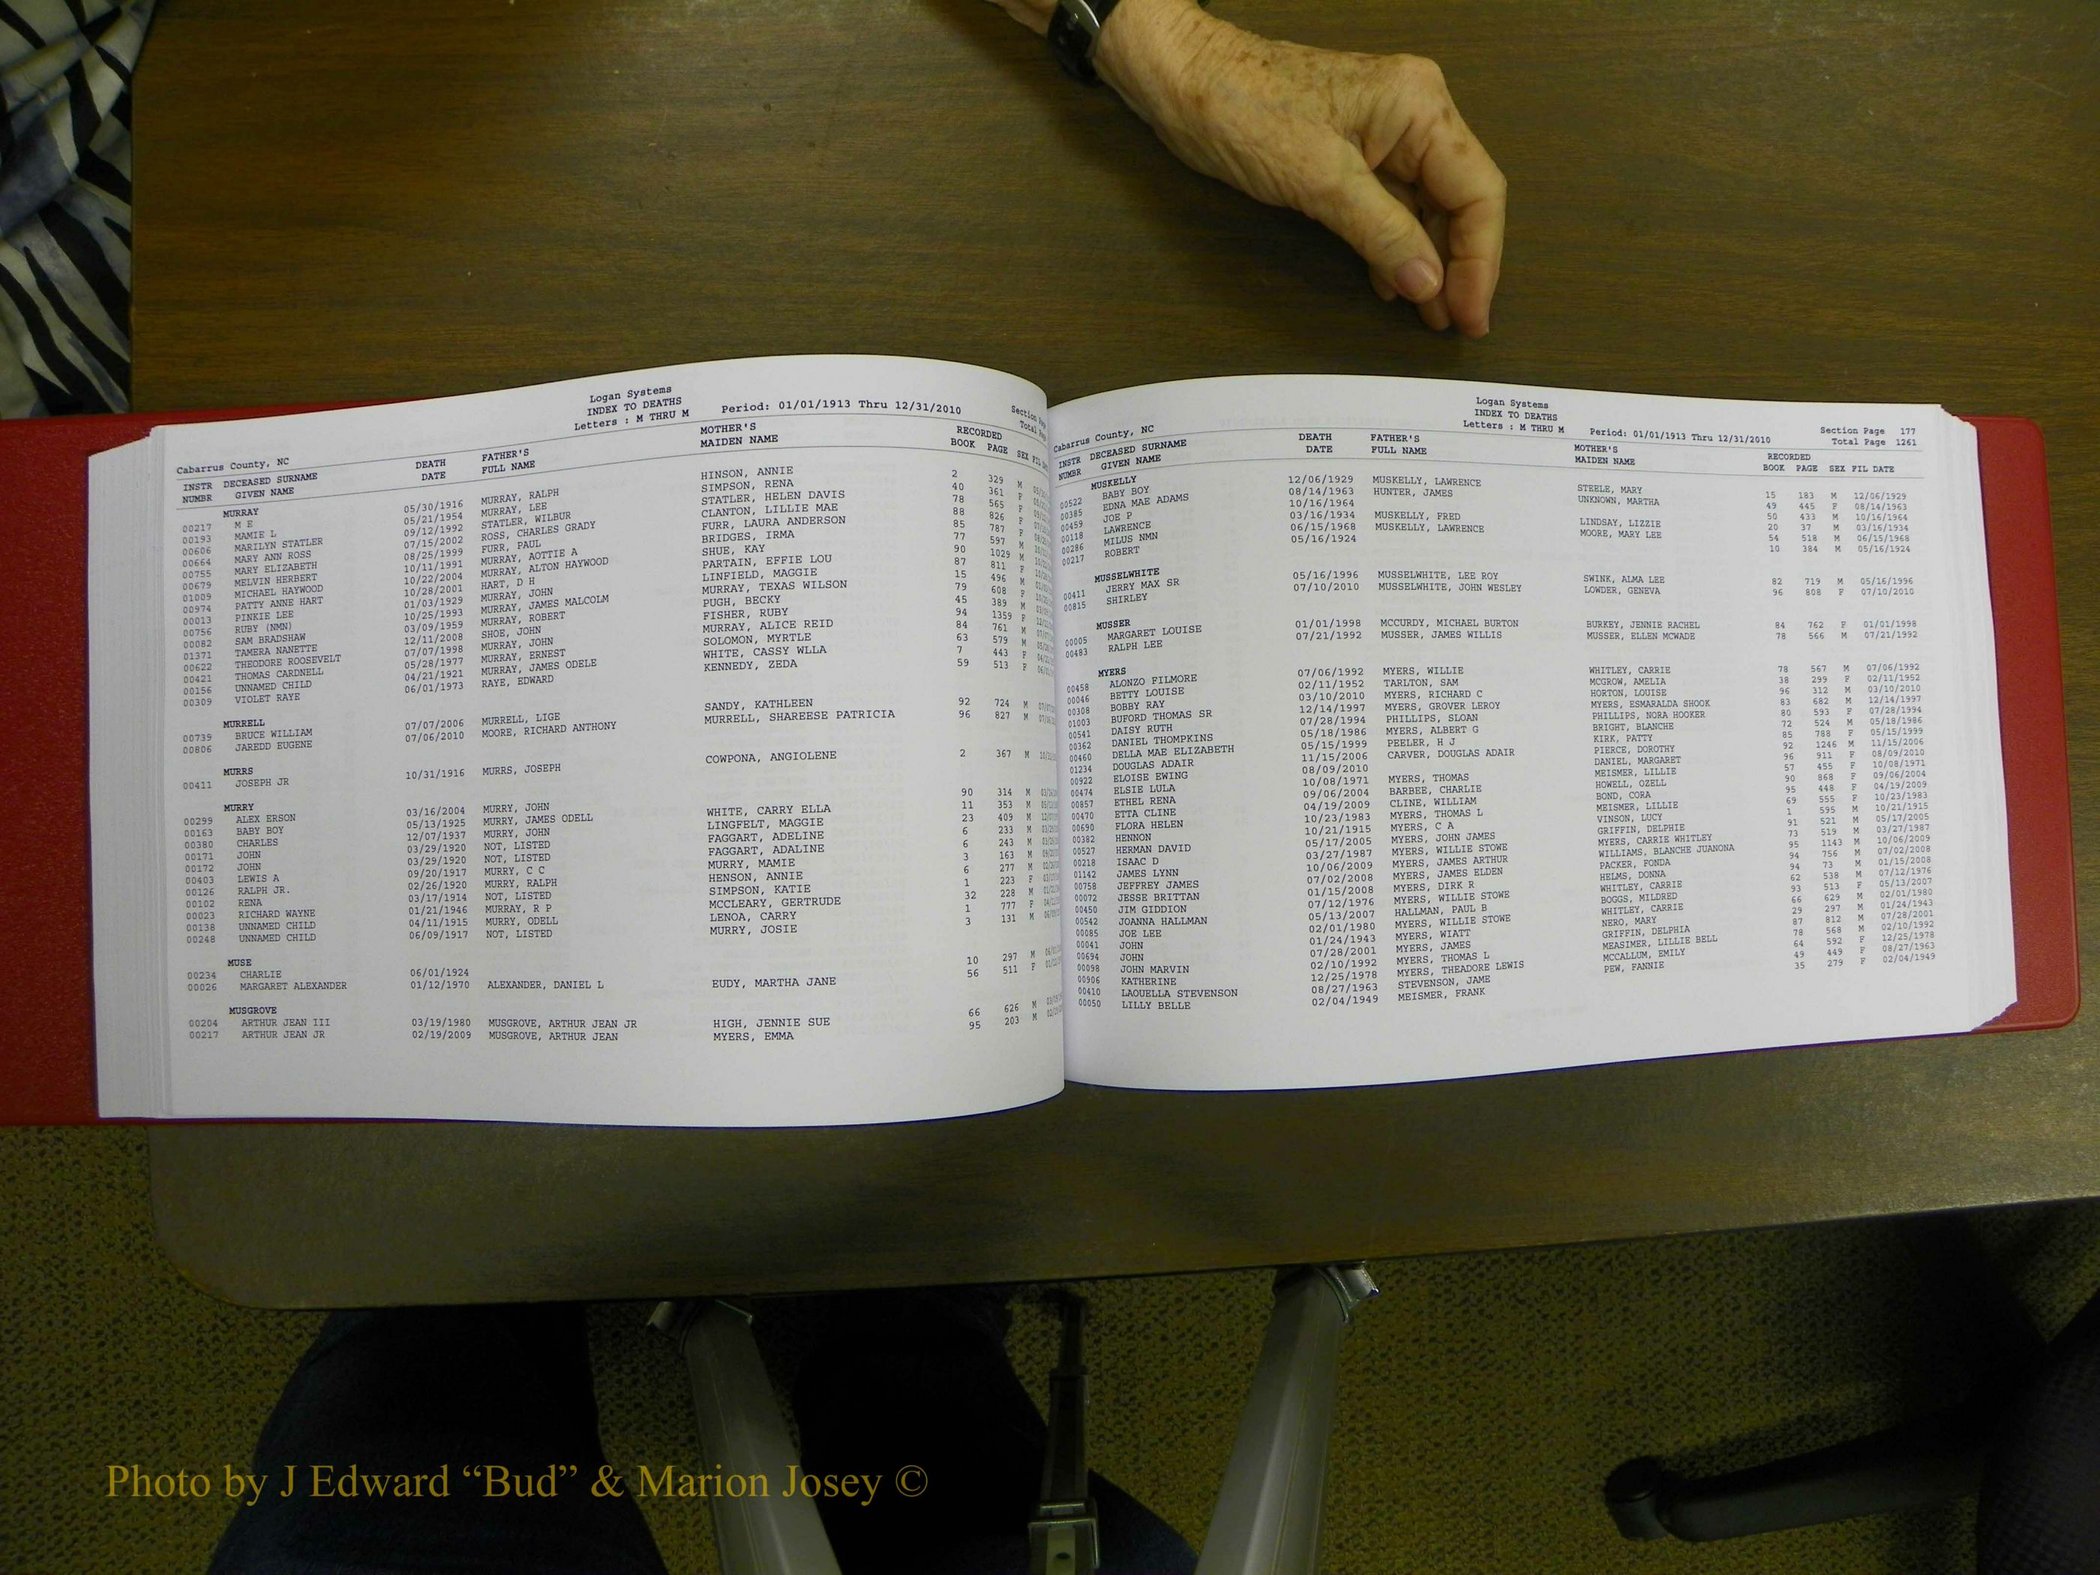 Logan Systems
INDEX TO DEATHS
Letters : M THRU M Period: 01/01/1913 Thru 12/31/2010
Cabarrus County, NC
INSTR DECEASED SURNAME DEATH FATHER'S MOTHER'S RECORDED
NUMBR GIVEN NAME DATE FULL NAME MAIDEN NAME BOOK PAGE SEX
MURRAY
00217 M E 05/30/1916 MURRAY, RALPH HINSON, ANNIE 2 329 M
00193 MAMIE L 05/21/1954 MURRAY, LEE SIMPSON, RENA 40 361 F
00606 MARILYN STATLER 09/12/1992 STATLER, WILBUR STATLER, HELEN DAVIS 78 565 F
00664 MARY ANN ROSS 07/15/2002 ROSS, CHARLES GRADY CLANTON, LILLIE MAE 88 826 F
00755 MARY ELIZABETH 08/25/1999 FURR, PAUL FURR, LAURA ANDERSON 85 787 F
00679 MELVIN HERBERT 10/11/1991 MURRAY, AOTTIE A BRIDGES, IRMA 77 597 M
01009 MICHAEL HAYWOOD 10/22/2004 MURRAY, ALTON HAYWOOD SHUE, KAY 90 1029 M
00974 PATTY ANNE HART 10/28/2001 HART, D H PARTAIN, EFFIE LOU 87 811 F
00013 PINKIE LEE 01/03/1929 MURRAY, JOHN LINFIELD, MAGGIE 15 496 M
00756 RUBY (NMN) 10/25/1993 MURRAY, JAMES MALCOLM MURRAY, TEXAS WILSON 79 608 F
00082 SAM BRADSHAW 03/09/1959 MURRAY, ROBERT PUGH, BECKY 45 389 M
01371 TAMERA NANETTE 12/11/2008 SHOE, JOHN FISHER, RUBY 94 1359 F
00622 THEODORE ROOSEVELT 07/07/1998 MURRAY, JOHN MURRAY, ALICE REID 84 761 M
00421 THOMAS CARDNELL 05/28/1977 MURRAY, ERNEST SOLOMON, MYRTLE 63 579 M
00156 UNNAMED CHILD 04/21/1921 MURRAY, JAMES ODELE WHITE, CASSY WLLA 7 443 F
00309 VIOLET RAYE 06/01/1973 RAYE, EDWARD KENNEDY, ZEDA 59 513 F
MURRELL
00739 BRUCE WILLIAM 07/07/2006 MURRELL, LIGE SANDY, KATHLEEN 92 724 M
00806 JAREDD EUGENE 07/06/2010 MOORE, RICHARD ANTHONY MURRELL, SHAREESE PATRICIA 96 827 M
MURRS
00411 JOSEPH JR 10/31/1916 MURRS, JOSEPH COWPONA, ANGIOLENE 2 367 M
MURRY
00299 ALEX ERSON 03/16/2004 MURRY, JOHN 90 314 M
00163 BABY BOY 05/13/1925 MURRY, JAMES ODELL WHITE, CARRY ELLA 11 353 M
00380 CHARLES 12/07/1937 MURRY, JOHN LINGFELT, MAGGIE 23 409 M
00171 JOHN 03/29/1920 NOT, LISTED FAGGART, ADELINE 6 233 M
00172 JOHN 03/29/1920 NOT, LISTED FAGGART, ADALINE 6 243 M
00403 LEWIS A 09/20/1917 MURRY, C C MURRY, MAMIE 3 163 M
00126 RALPH JR. 02/26/1920 MURRY, RALPH HENSON, ANNIE 6 277 M
00102 RENA 03/17/1914 NOT, LISTED SIMPSON, KATIE 1 223 F
00023 RICHARD WAYNE 01/21/1946 MURRAY, R P MCCLEARY, GERTRUDE 32 228 M
00138 UNNAMED CHILD 04/11/1915 MURRY, ODELL LENOA, CARRY 1 777 F
00248 UNNAMED CHILD 06/09/1917 NOT, LISTED MURRY, JOSIE 3 131 M
MUSE
00234 CHARLIE 06/01/1924 10 297 M
00026 MARGARET ALEXANDER 01/12/1970 ALEXANDER, DANIEL L EUDY, MARTHA JANE 56 511 F
MUSGROVE
00204 ARTHUR JEAN III 03/19/1980 MUSGROVE, ARTHUR JEAN JR HIGH, JENNIE SUE 66 626 M
00217 ARTHUR JEAN JR 02/19/2009 MUSGROVE, ARTHUR JEAN MYERS, EMMA 95 203 M
Logan Systems
INDEX TO DEATHS
Letters : M THRU M Period: 01/01/1913 Thru 12/31/2010 Section Page 177
Cabarrus County, NC Total Page 1261
INSTR DECEASED SURNAME DEATH FATHER'S MOTHER'S RECORDED
NUMBR GIVEN NAME DATE FULL NAME MAIDEN NAME BOOK PAGE SEX FIL DATE
MUSKELLY
00522 BABY BOY 12/06/1929 MUSKELLY, LAWRENCE STEELE, MARY 15 183 M 12/06/1929
00385 EDNA MAE ADAMS 08/14/1963 HUNTER, JAMES UNKNOWN, MARTHA 49 445 F 08/14/1963
00459 JOE P 10/16/1964 50 433 M 10/16/1964
00118 LAWRENCE 03/16/1934 MUSKELLY, FRED LINDSAY, LIZZIE 20 37 M 03/16/1934
00286 MILUS NMN 06/15/1968 MUSKELLY, LAWRENCE MOORE, MARY LEE 54 518 M 06/15/1968
00217 ROBERT 05/16/1924 10 384 M 05/16/1924
MUSSELWHITE
00411 JERRY MAX SR 05/16/1996 MUSSELWHITE, LEE ROY SWINK, ALMA LEE 82 719 M 05/16/1996
00815 SHIRLEY 07/10/2010 MUSSELWHITE, JOHN WESLEY LOWDER, GENEVA 96 808 F 07/10/2010
MUSSER
00005 MARGARET LOUISE 01/01/1998 MCCURDY, MICHAEL BURTON BURKEY, JENNIE RACHEL 84 762 F 01/01/1998
00483 RALPH LEE 07/21/1992 MUSSER, JAMES WILLIS MUSSER, ELLEN MCWADE 78 566 M 07/21/1992
MYERS
00458 ALONZO FILMORE 07/06/1992 MYERS, WILLIE WHITLEY, CARRIE 78 567 M 07/06/1992
00046 BETTY LOUISE 02/11/1952 TARLTON, SAM MCGROW, AMELIA 38 299 F 02/11/1952
00308 BOBBY RAY 03/10/2010 MYERS, RICHARD C HORTON, LOUISE 96 312 M 03/10/2010
01003 BUFORD THOMAS SR 12/14/1997 MYERS, GROVER LEROY MYERS, ESMARALDA SHOOK 83 682 M 12/14/1997
00541 DAISY RUTH 07/28/1994 PHILLIPS, SLOAN PHILLIPS, NORA HOOKER 80 593 F 07/28/1994
00362 DANIEL THOMPKINS 05/18/1986 MYERS, ALBERT G BRIGHT, BLANCHE 72 524 M 05/18/1986
00460 DELLA MAE ELIZABETH 05/15/1999 PEELER, H J KIRK, PATTY 85 788 F 05/15/1999
01234 DOUGLAS ADAIR 11/15/2006 CARVER, DOUGLAS ADAIR PIERCE, DOROTHY 92 1246 M 11/15/2006
00922 ELOISE EWING 08/09/2010 DANIEL, MARGARET 96 911 F 08/09/2010
00474 ELSIE LULA 10/08/1971 MYERS, THOMAS MEISMER, LILLIE 57 455 F 10/08/1971
00857 ETHEL RENA 09/06/2004 BARBEE, CHARLIE HOWELL, OZELL 90 868 F 09/06/2004
00470 ETTA CLINE 04/19/2009 CLINE, WILLIAM BOND, CORA 95 448 F 04/19/2009
00690 FLORA HELEN 10/23/1983 MYERS, THOMAS L MEISMER, LILLIE 69 555 F 10/23/1983
00382 HENNON 10/21/1915 MYERS, C A VINSON, LUCY 1 595 M 10/21/1915
00527 HERMAN DAVID 05/17/2005 MYERS, JOHN JAMES GRIFFIN, DELPHIE 91 521 M 05/17/2005
00218 ISAAC D 03/27/1987 MYERS, WILLIE STOWE MYERS, CARRIE WHITLEY 73 519 M 03/27/1987
01142 JAMES LYNN 10/06/2009 MYERS, JAMES ARTHUR WILLIAMS, BLANCHE JUANONA 95 1143 M 10/06/2009
00758 JEFFREY JAMES 07/02/2008 MYERS, JAMES ELDEN PACKER, FONDA 94 756 M 07/02/2008
00072 JESSE BRITTAN 01/15/2008 MYERS, DIRK R HELMS, DONNA 94 73 M 01/15/2008
00450 JIM GIDDION 07/12/1976 MYERS, WILLIE STOWE WHITLEY, CARRIE 62 538 M 07/12/1976
00542 JOANNA HALLMAN 05/13/2007 HALLMAN, PAUL B BOGGS, MILDRED 93 513 F 05/13/2007
00085 JOE LEE 02/01/1980 MYERS, WILLIE STOWE WHITLEY, CARRIE 66 629 M 02/01/1980
00041 JOHN 01/24/1943 MYERS, WIATT NERO, MARY 29 297 M 01/24/1943
00694 JOHN 07/28/2001 MYERS, JAMES GRIFFIN, DELPHIA 87 812 M 07/28/2001
00098 JOHN MARVIN 02/10/1992 MYERS, THOMAS L MEASIMER, LILLIE BELL 78 568 M 02/10/1992
00906 KATHERINE 12/25/1978 MYERS, THEADORE LEWIS MCCALLUM, EMILY 64 592 F 12/25/1978
00410 LAOUELLA STEVENSON 08/27/1963 STEVENSON, JAME PEW, FANNIE 49 449 F 08/27/1963
00050 LILLY BELLE 02/04/1949 MEISMER, FRANK 35 279 F 02/04/1949
Photo by J Edward “Bud” & Marion Josey ©